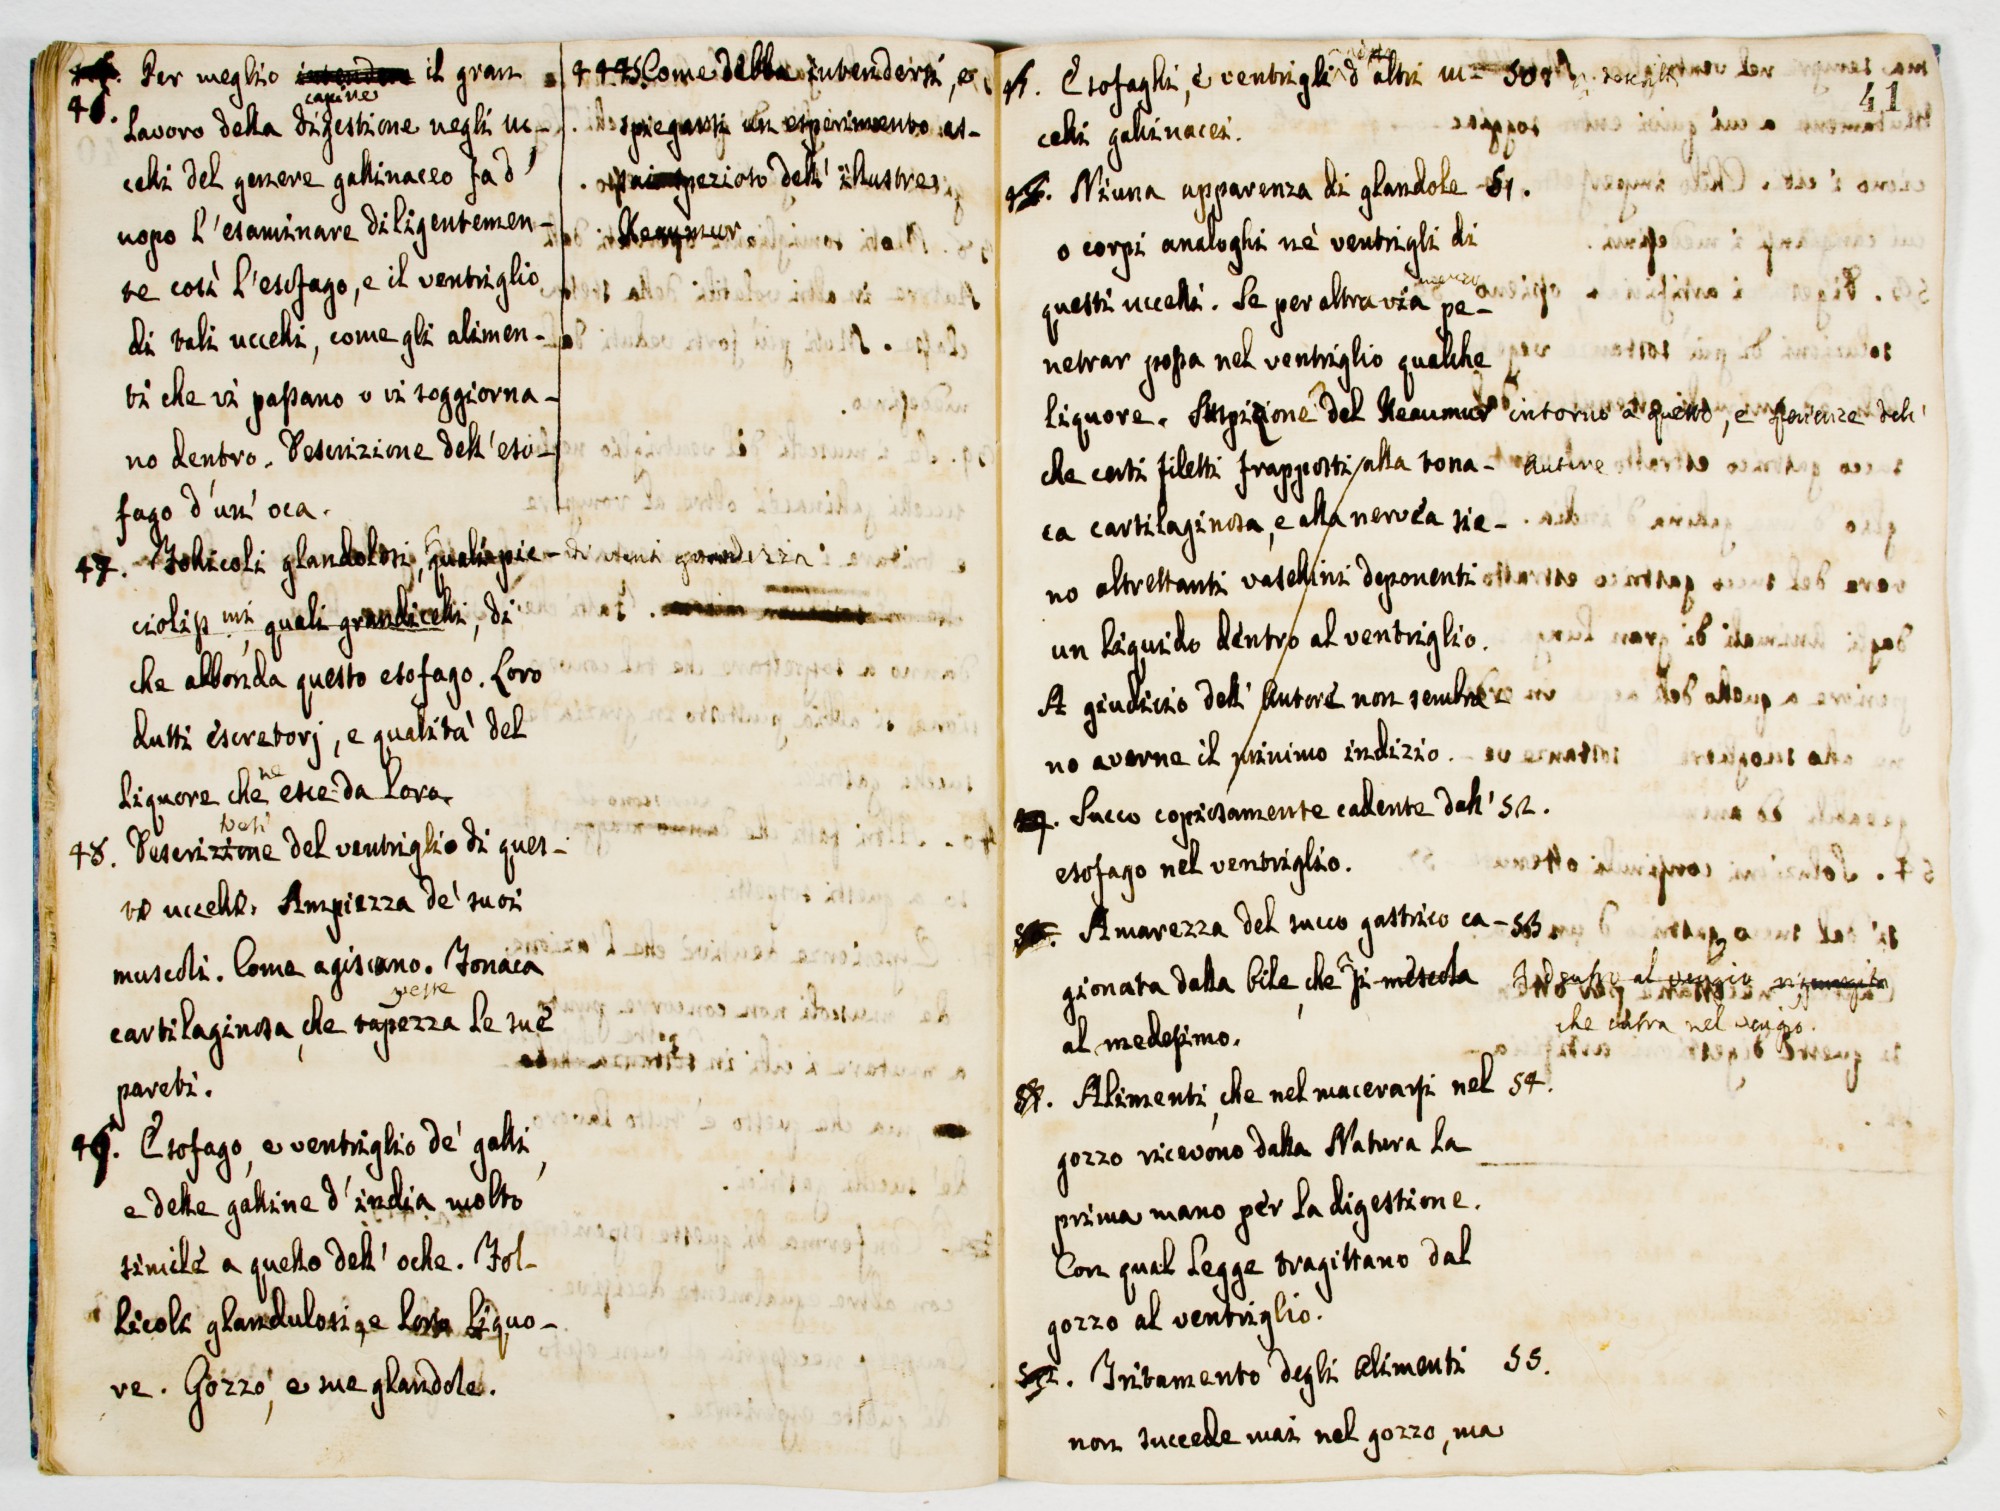 46. Per meglio intendere il gran
capire
lavoro della digestione negli uc-
celli del genere gallinaceo fa d'
uopo l'esaminare diligentemen-
te così l'esofago, e il ventriglio
di tali uccelli, come gli alimen-
ti che vi passano o vi soggiorna-
no dentro. Descrizione dell'eso-
fago d'un'oca.
47. Follicoli glandolosi, quali pic-
ciolissimi, quali grandicelli, di
che abbonda questo esofago. Loro
dutti escretorj, e qualità del
liquore che ne esce da loro.
48. Descrizione del ventriglio di ques-
ti uccelli. Ampiezza de' suoi
muscoli. Come agiscano. Tonaca
veste
cartilaginosa, che tapezza le sue
pareti.
49. Esofago, e ventriglio de' galli,
e delle galline d'india molto
simile a quello dell'oche. Fol-
licoli glandulosi, e loro liquo-
re. Gozzo, e sue glandole.
Come debba intendersi, e
spiegarsi un esperimento as-
sai spezioso dell'illustre
Reaumur
di varia grandezza
41
Esofaghi, e ventrigli d'altri uc- 50.
celli gallinacei.
Niuna apparenza di glandole 51.
o corpi analoghi ne' ventrigli di
questi uccelli. Se per altra via pe-
netrar possa nel ventriglio qualche
liquore. Suspizione del Reaumur intorno a questo, e dell'
che certi filetti frapposti alla tona- Autore
ca cartilaginosa, e alla nervea sie-
no altrettanti vasellini deponenti
un liquido dentro al ventriglio.
A giudizio dell'Autore non sembra
no averne il minimo indizio.
Succo copiosamente cadente dall' 52.
esofago nel ventriglio.
Amarezza del succo gastrico ca- 53.
gionata dalla bile, che si mescola
al medesimo.
che entra nel
Alimenti, che nel macerarsi nel 54.
gozzo ricevono dalla Natura la
prima mano per la digestione.
Con qual legge tragittano dal
gozzo al ventriglio.
52. Tritamento degli alimenti 55.
non succede mai nel gozzo, ma